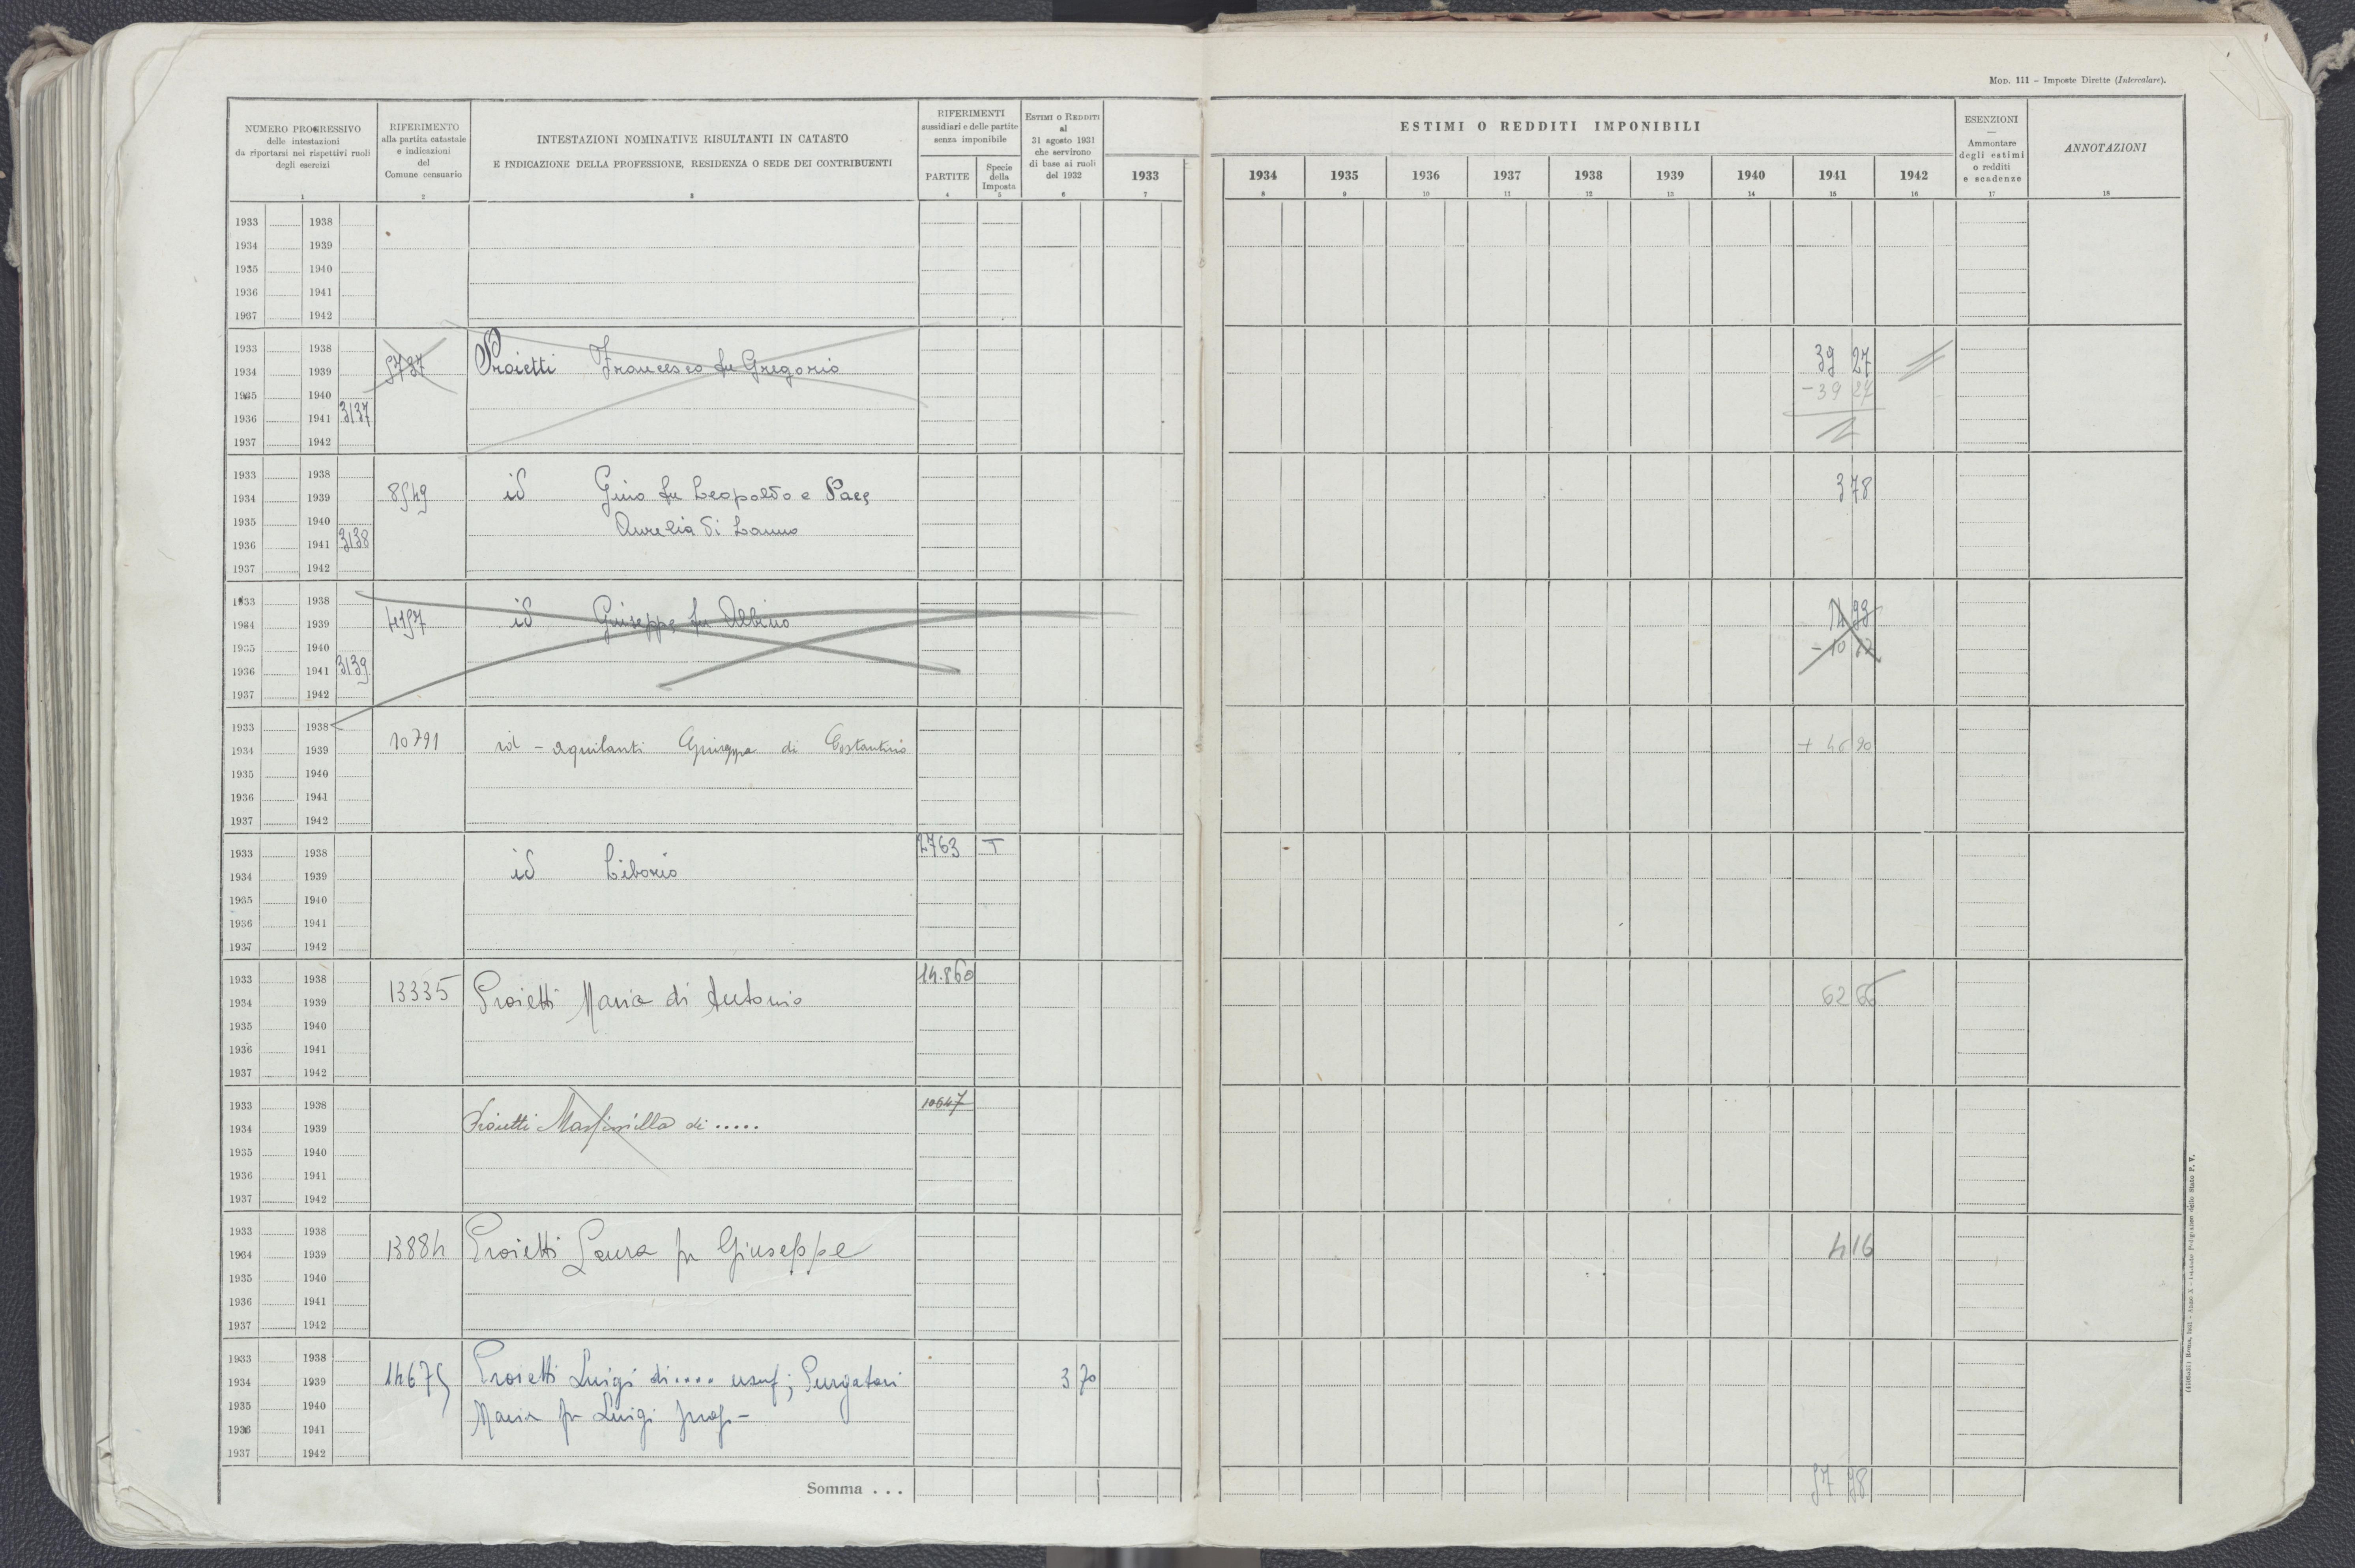 MOD. 111 – Imposte Dirette (Intercalare).
NUMERO PROGRESSIVO
delle intestazioni
da riportarsi nei rispettivi ruoli
degli esercizi
1
RIFERIMENTO
alla partita catastale
e indicazioni
del
Comune censuario
2
INTESTAZIONI NOMINATIVE RISULTANTI IN CATASTO
E INDICAZIONE DELLA PROFESSIONE, RESIDENZA O SEDE DEI CONTRIBUENTI
3
RIFERIMENTI
sussidiari e delle partite
senza imponibile
PARTITE
4
Specie
della
Imposta
5
ESTIMI O REDDITI
al
31 agosto 1931
che servirono
di base ai ruoli
del 1932
6
1933
7
ESTIMI O REDDITI IMPONIBILI
1934 1935 1936 1937 1938 1939 1940 1941 1942
8 9 10 11 12 13 14 15 16
ESENZIONI
—
Ammontare
degli estimi
o redditi
e scadenze
17
ANNOTAZIONI
18
1933 1938
1934 1939
1935 1940
1936 1941
1937 1942
1933 1938
1934 1939 5737 Proietti Francesco fu Gregorio 39 27
1935 1940 -39 27
1936 1941 3137
1937 1942
1933 1938
1934 1939 8549 id Gino fu Leopoldo e Pace 3 78
1935 1940 Aurelia di
1936 1941 3138
1937 1942
1933 1938
1934 1939 4157 id Giuseppe fu Albino 14 93
1935 1940
1936 1941 3139
1937 1942
1933 1938
1934 1939 10791 id - aquilanti Giuseppa di Costantino + 46 90
1935 1940
1936 1941
1937 1942
1933 1938 2763 T
1934 1939 id Liborio
1935 1940
1936 1941
1937 1942
1933 1938 14.860
1934 1939 13335 Proietti Maria di Antonio 62 66
1935 1940
1936 1941
1937 1942
1933 1938 10647
1934 1939 Proietti di .....
1935 1940
1936 1941
1937 1942
1933 1938
1934 1939 13884 Proietti Laura fu Giuseppe 4 16
1935 1940
1936 1941
1937 1942
1933 1938
1934 1939 14675 Proietti Luigi di .... usuf; Purgatori 3 70
1935 1940 Maria fu Luigi prop-
1936 1941
1937 1942
Somma . . . 57 98